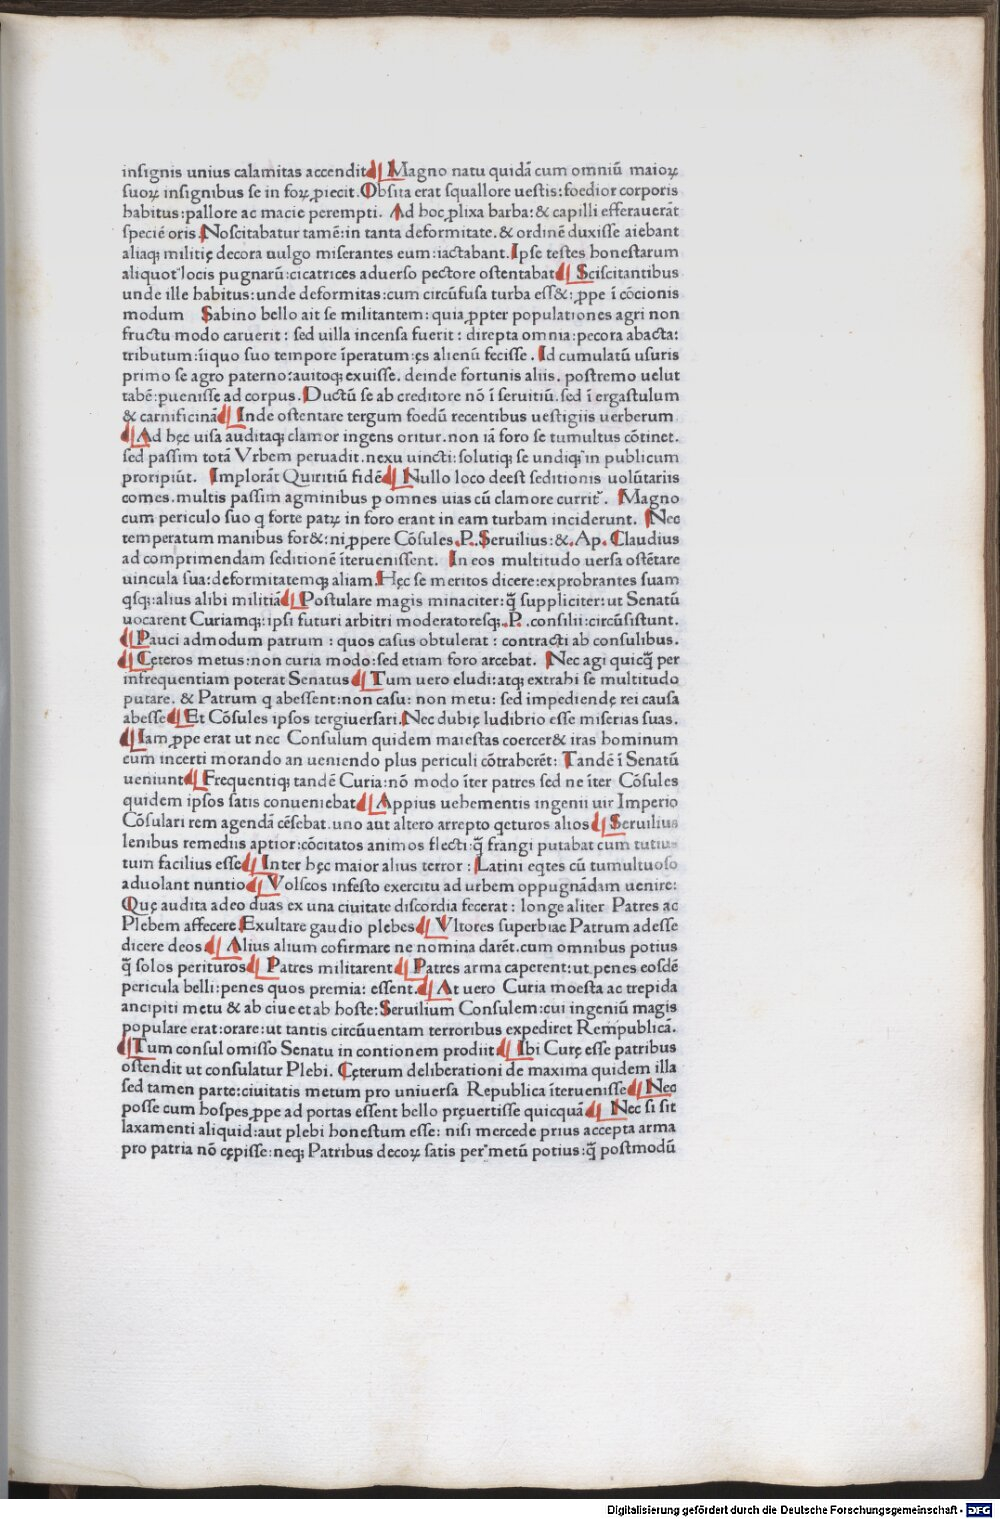 insignis unius calamitas accendit Magno natu quidã cum omniũ maioꝝ
suoꝝ insignibus se in foꝝ ꝓiecit. Obsita erat squallore uestis: foedior corporis
habitus: pallore ac macie perempti. Ad hoc ꝓlixa barba: & capilli efferauerãt
specié oris. Noscitabatur tamẽ: in tanta deformitate. & ordinẽ duxisse aiebant
aliaqꝫ militię decora uulgo miserantes eum: iactabant. Ipse testes honestarum
aliquot locis pugnarũ: cicatrices aduerso pectore ostentabat Sciscitantibus
unde ille habitus: unde deformitas: cum circũfusa turba ess&: ꝓpe ĩ cõcionis
modum Sabino bello ait se militantem: quia ꝓpter populationes agri non
fructu modo caruerit: sed uilla incensa fuerit: direpta omnia: pecora abacta:
tributum: ĩiquo suo tempore ĩperatum: ęs alienũ fecisse. Id cumulatũ usuris
primo se agro paterno: auitoqꝫ exuisse. deinde fortunis aliis. postremo uelut
tabẽ: ꝑuenisse ad corpus. Ductũ se ab creditore nõ ĩ seruitiũ. sed ĩ ergastulum
& carnificinã Inde ostentare tergum foedũ recentibus uestigiis uerberum
Ad hęc uisa auditaqꝫ clamor ingens oritur. non iã foro se tumultus cõtinet.
sed passim totã Vrbem peruadit. nexu uincti: solutiqꝫ se undiqꝫ in publicum
proripiũt. Implorãt Quiritiũ fidẽ Nullo loco deest seditionis uolũtariis
comes. multis passim agminibus ꝑ omnes uias cũ clamore currit̃. Magno
cum periculo suo q forte patꝝ in foro erant in eam turbam inciderunt. Nec
temperatum manibus for&: ni ꝓpere Cõsules. P. Seruilius: &. Ap. Claudius
ad comprimendam seditionẽ ĩteruenissent. In eos multitudo uersa ostẽtare
uincula sua: deformitatemqꝫ aliam. Hęc se meritos dicere: exprobrantes suam
qsqꝫ: alius alibi militiã Postulare magis minaciter: q̃ suppliciter: ut Senatũ
uocarent Curiamqꝫ: ipsi futuri arbitri moderatoresqꝫ. P. consilii: circũsistunt.
Pauci admodum patrum: quos casus obtulerat: contracti ab consulibus.
Cęteros metus: non curia modo: sed etiam foro arcebat. Nec agi quicq̃ per
infrequentiam poterat Senatus Tum uero eludi: atqꝫ extrahi se multitudo
putare. & Patrum q abessent: non casu: non metu: sed impediendę rei causa
abesse Et Cõsules ipsos tergiuersari. Nec dubię ludibrio esse miserias suas.
Iam ꝓpe erat ut nec Consulum quidem maiestas coercer& iras hominum
cum incerti morando an ueniendo plus periculi cõtraherẽt: Tandẽ ĩ Senatũ
ueniunt Frequentiqꝫ tandẽ Curia: nõ modo ĩter patres sed ne ĩter Cõsules
quidem ipsos satis conueniebat Appius uehementis ingenii uir Imperio
Cõsulari rem agendã cẽsebat. uno aut altero arrepto qeturos alios Seruilius
lenibus remediis aptior: cõcitatos animos flecti: q̃ frangi putabat cum tutius
tum facilius esse Inter hęc maior alius terror: Latini eqtes cũ tumultuoso
aduolant nuntio Volscos infesto exercitu ad urbem oppugnãdam uenire:
Quę audita adeo duas ex una ciuitate discordia fecerat: longe aliter Patres ac
Plebem affecere. Exultare gaudio plebes Vltores superbiae Patrum adesse
dicere deos Alius alium cofirmare ne nomina darẽt. cum omnibus potius
q̃ solos perituros Patres militarent Patres arma caperent: ut penes eosdẽ
pericula belli: penes quos premia: essent. At uero Curia moesta ac trepida
ancipiti metu & ab ciue et ab hoste: Seruilium Consulem: cui ingeniũ magis
populare erat: orare: ut tantis circũuentam terroribus expediret Rempublicã.
Tum consul omisso Senatu in contionem prodiit Ibi Curę esse patribus
ostendit ut consulatur Plebi. Cęterum deliberationi de maxima quidem illa
sed tamen parte: ciuitatis metum pro uniuersa Republica ĩteruenisse Nec
posse cum hospes ꝓpe ad portas essent bello pręuertisse quicquã Nec si sit
laxamenti aliquid: aut plebi honestum esse: nisi mercede prius accepta arma
pro patria nõ cępisse: neqꝫ Patribus decoꝝ satis per metũ potius: q̃ postmodũ
Digitalisierung gefördert durch die Deutsche Forschungsgemeinschaft - DFG